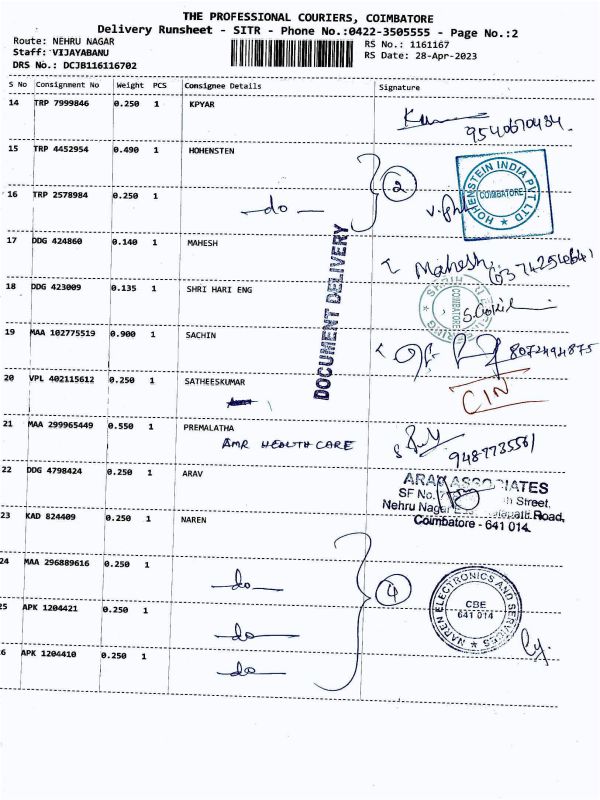 THE PROFESSIONAL COURIERS, COIMBATORE
Delivery Runsheet - SITR - Phone No.:0422-3505555 - Page No.:2
Route: NEHRU NAGAR
RS No.: 1161167
Staff: VIJAYABANU
RS Date: 28-Apr-2023
DRS No.: DCJB116116702
S No Consignment No Weight PCS Consignee Details Signature
14 TRP 7999846 0.250 1 KPYAR
9540670484.
15 TRP 4452954 0.490 1 HOHENSTEN
2
HOHENSTEIN INDIA PVT LTD
COIMBATORE
16 TRP 2578984 0.250 1 -do-
17 DDG 424860 0.140 1 MAHESH
Mahesh
DOCUMENT DELIVERY
18 DDG 423009 0.135 1 SHRI HARI ENG
COIMBATORE
19 MAA 102775519 0.900 1 SACHIN
8072494875
20 VPL 402115612 0.250 1 SATHEESKUMAR
CIN
21 MAA 299965449 0.550 1 PREMALATHA
AMR HEALTH CARE
9487735561
22 DDG 4798424 0.250 1 ARAV
ASSOCIATES
SF No.
Street,
Nehru Nagar
Road,
Coimbatore - 641 014.
23 KAD 824409 0.250 1 NAREN
24 MAA 296889616 0.250 1 -do-
4
NAREN ELECTRONICS AND SERVICES
CBE
641 014
25 APK 1204421 0.250 1 -do-
6 APK 1204410 0.250 1 -do-